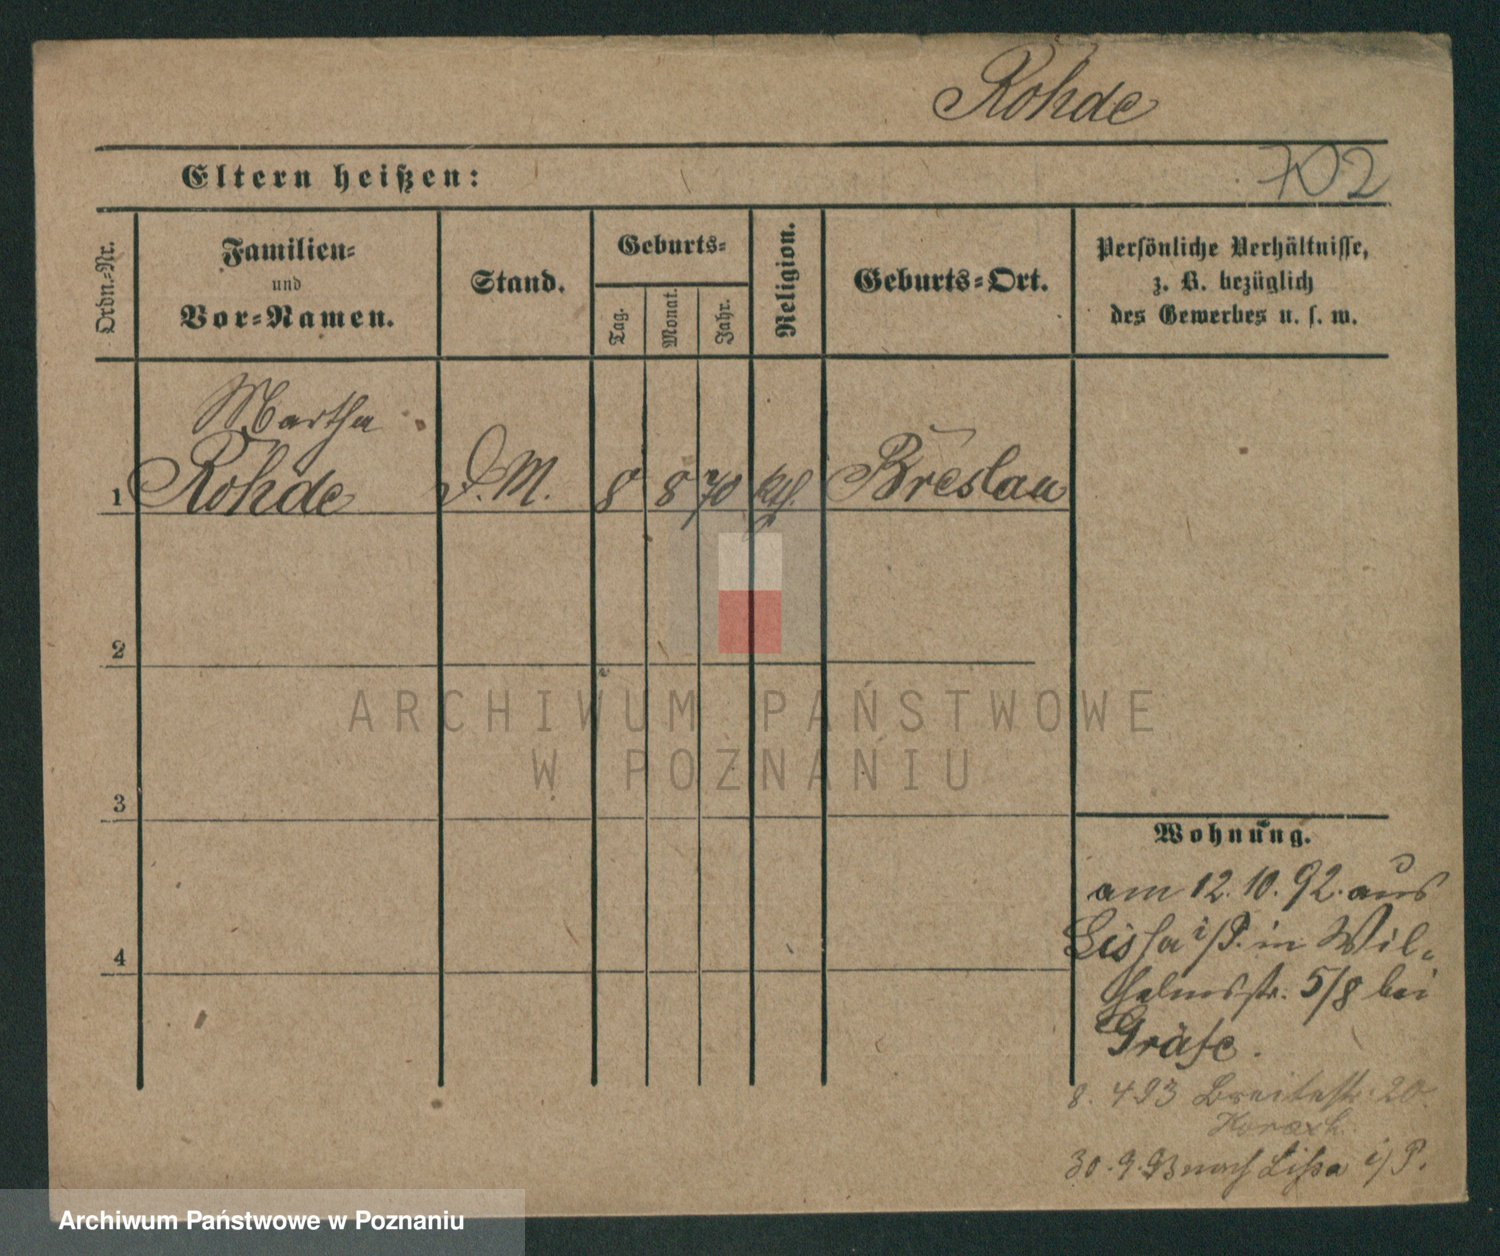 Rohde
Eltern heißen:
702
Ordn.=Nr.
Familien=
und
Vor=Namen.
Stand.
Geburts=
Tag.
Monat.
Jahr.
Religion.
Geburts=Ort.
Persönliche Verhältnisse,
z. B. bezüglich
des Gewerbes u. s. w.
Martha
1 Rohde D. M. 8 8 70 kth. Breslau
2
ARCHIWUM PAŃSTWOWE
W POZNANIU
3
4
Wohnung.
am 12. 10. 92. aus
Lissa i/P. in Wil-
helmsstr. 5/8 bei
Gräfe.
8. 4 93 Breitestr. 20.
30. 9. 93 nach Lissa i/P.
Archiwum Państwowe w Poznaniu